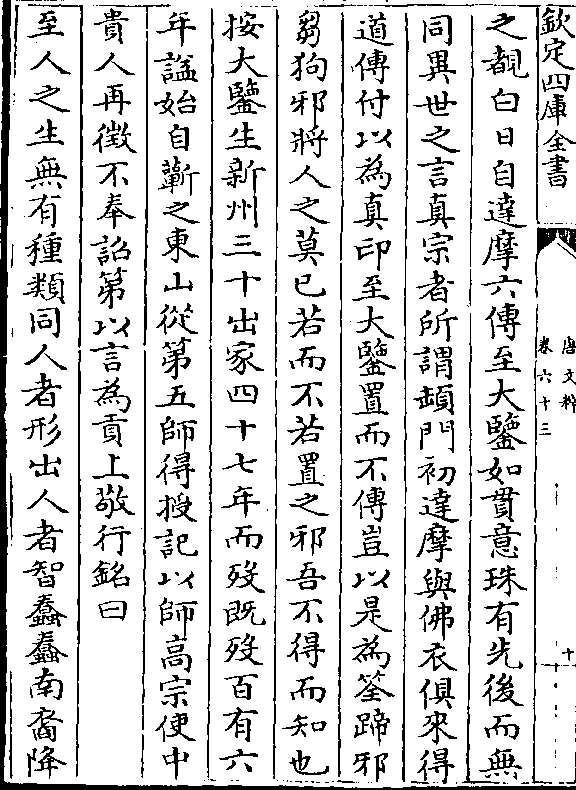 欽定四庫全書
唐文粹
卷六十三
十
之覩白日自達摩六傳至大鑒如貫意珠有先後而無
同異世之言真宗者所謂頓門初達摩與佛衣俱來得
道傳付以為真印至大鑒置而不傳豈以是為筌蹄邪
芻狗邪將人之莫已若而不若置之邪吾不得而知也
按大鑒生新州三十出家四十七年而殁既殁百有六
年諡始自蘄之東山從第五師得授記以師高宗使中
貴人再徵不奉詔第以言為貢上敬行銘曰
至人之生無有種類同人者形出人者智蠢蠢南裔降